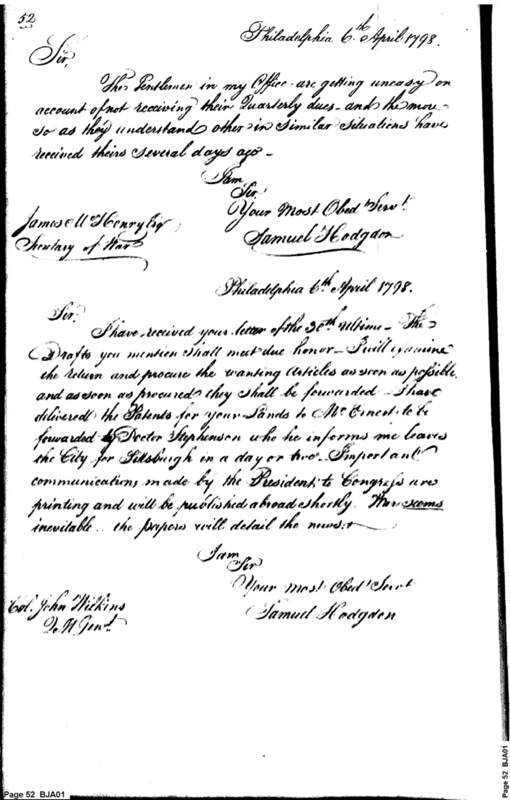 52
Philadelphia 6th April 1798.
Sir,
The Gentlemen in my Office are getting uneasy on
account of not receiving their Quarterly dues - and the more
so as they understand other in Similar Situations have
received theirs several days ago -
I am
Sir,
Your Most Obedt Servt.
James McHenry Esq
Samuel Hodgdon
Secretary of War
Philadelphia 6th April 1798.
Sir.
I have received your letter of the 30th ultimo - The
Drafts you mention shall meet due honor - I will examine
the return and procure the wanting Articles as soon as possible.
and as soon as procured they shall be forwarded - I have
delivered the Patents for your Lands to Mr. Ernest to be
forwarded by Doctor Stephenson who he informs me leaves
the City for Pittsburgh in a day or two - Important
communications made by the President to Congress are
printing and will be published abroad shortly. War seems
inevitable .. the papers will detail the news.
I am
Sir
Your most Obedt Servt
Col. John Wilkins
Samuel Hodgdon
Q M Genl.
Page 52 BJA01
Page 52 BJA01